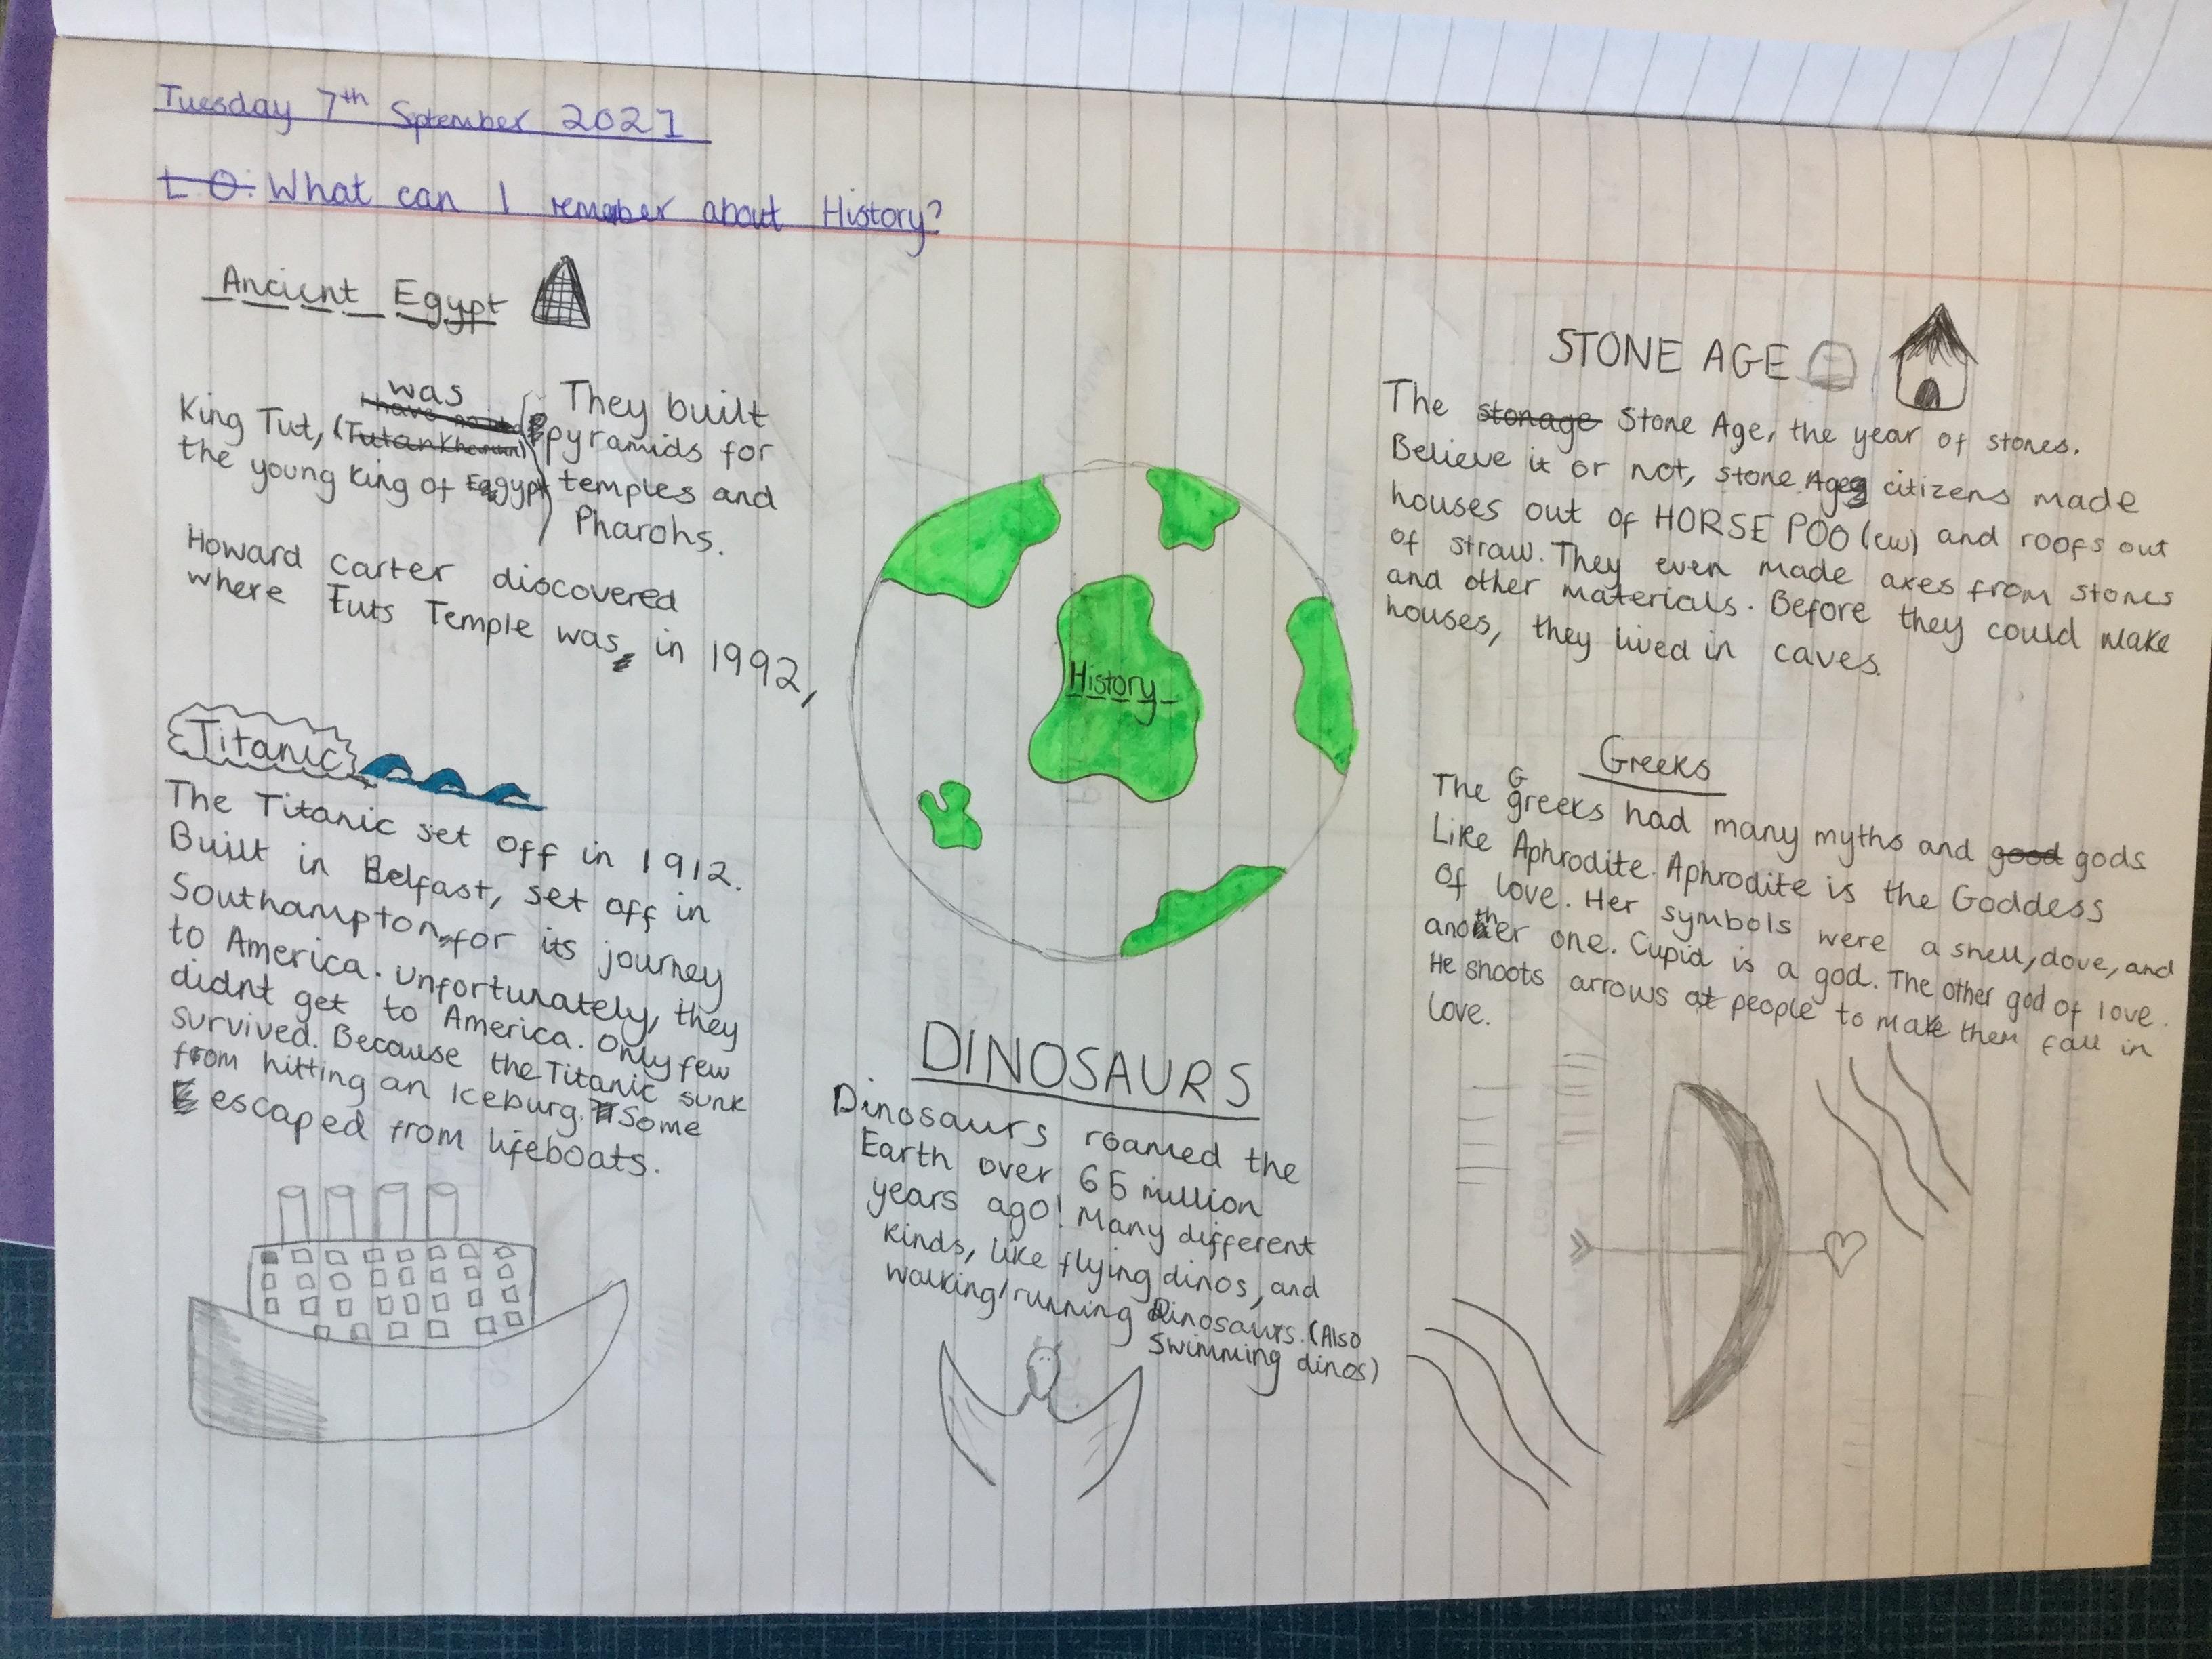 Tuesday 7th September 2021
L O: What can I remember about History?
Ancient Egypt
was
King Tut, (Tutankhamun)
the young King of Egypt
They built
pyramids for
temples and
Pharohs.
Howard Carter discovered
where Tuts Temple was, in 1992,
Titanic
The Titanic set off in 1912.
Built in Belfast, set off in
Southampton, for its journey
to America. Unfortunately, they
didnt get to America. Only few
survived. Because the Titanic sunk
from hitting an Iceburg. Some
escaped from lifeboats.
History
DINOSAURS
Dinosaurs roamed the
Earth over 65 million
years ago! Many different
Kinds, like flying dinos, and
walking/running Dinosaurs. (Also
Swimming dinos)
STONE AGE
The stonage Stone Age, the year of stones.
Believe it or not, stone Age citizens made
houses out of HORSE POO (ew) and roofs out
of straw. They even made axes from stones
and other materials. Before they could make
houses, they lived in caves.
Greeks
The Greeks had many myths and good gods
Like Aphrodite. Aphrodite is the Goddess
of love. Her symbols were a shell, dove, and
another one. Cupid is a god. The other god of love.
He shoots arrows at people to make them fall in
love.